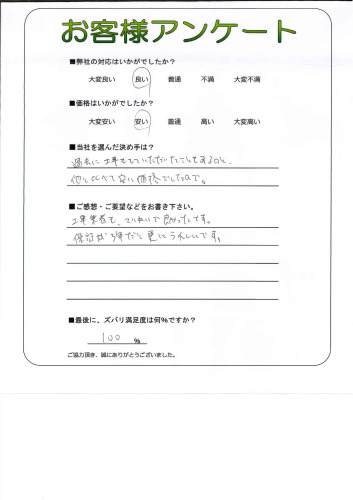 お客様アンケート
■弊社の対応はいかがでしたか?
大変良い 良い 普通 不満 大変不満
■価格はいかがでしたか?
大変安い 安い 普通 高い 大変高い
■当社を選んだ決め手は?
過去に工事もしていただいたこともあるのと、
他と比べて安い価格でしたので。
■ご感想・ご要望などをお書き下さい。
工事業者も、ていねいで良かったです。
保証が5年だと更にうれしいです。
■最後に、ズバリ満足度は何%ですか?
100 %
ご協力頂き、誠にありがとうございました。